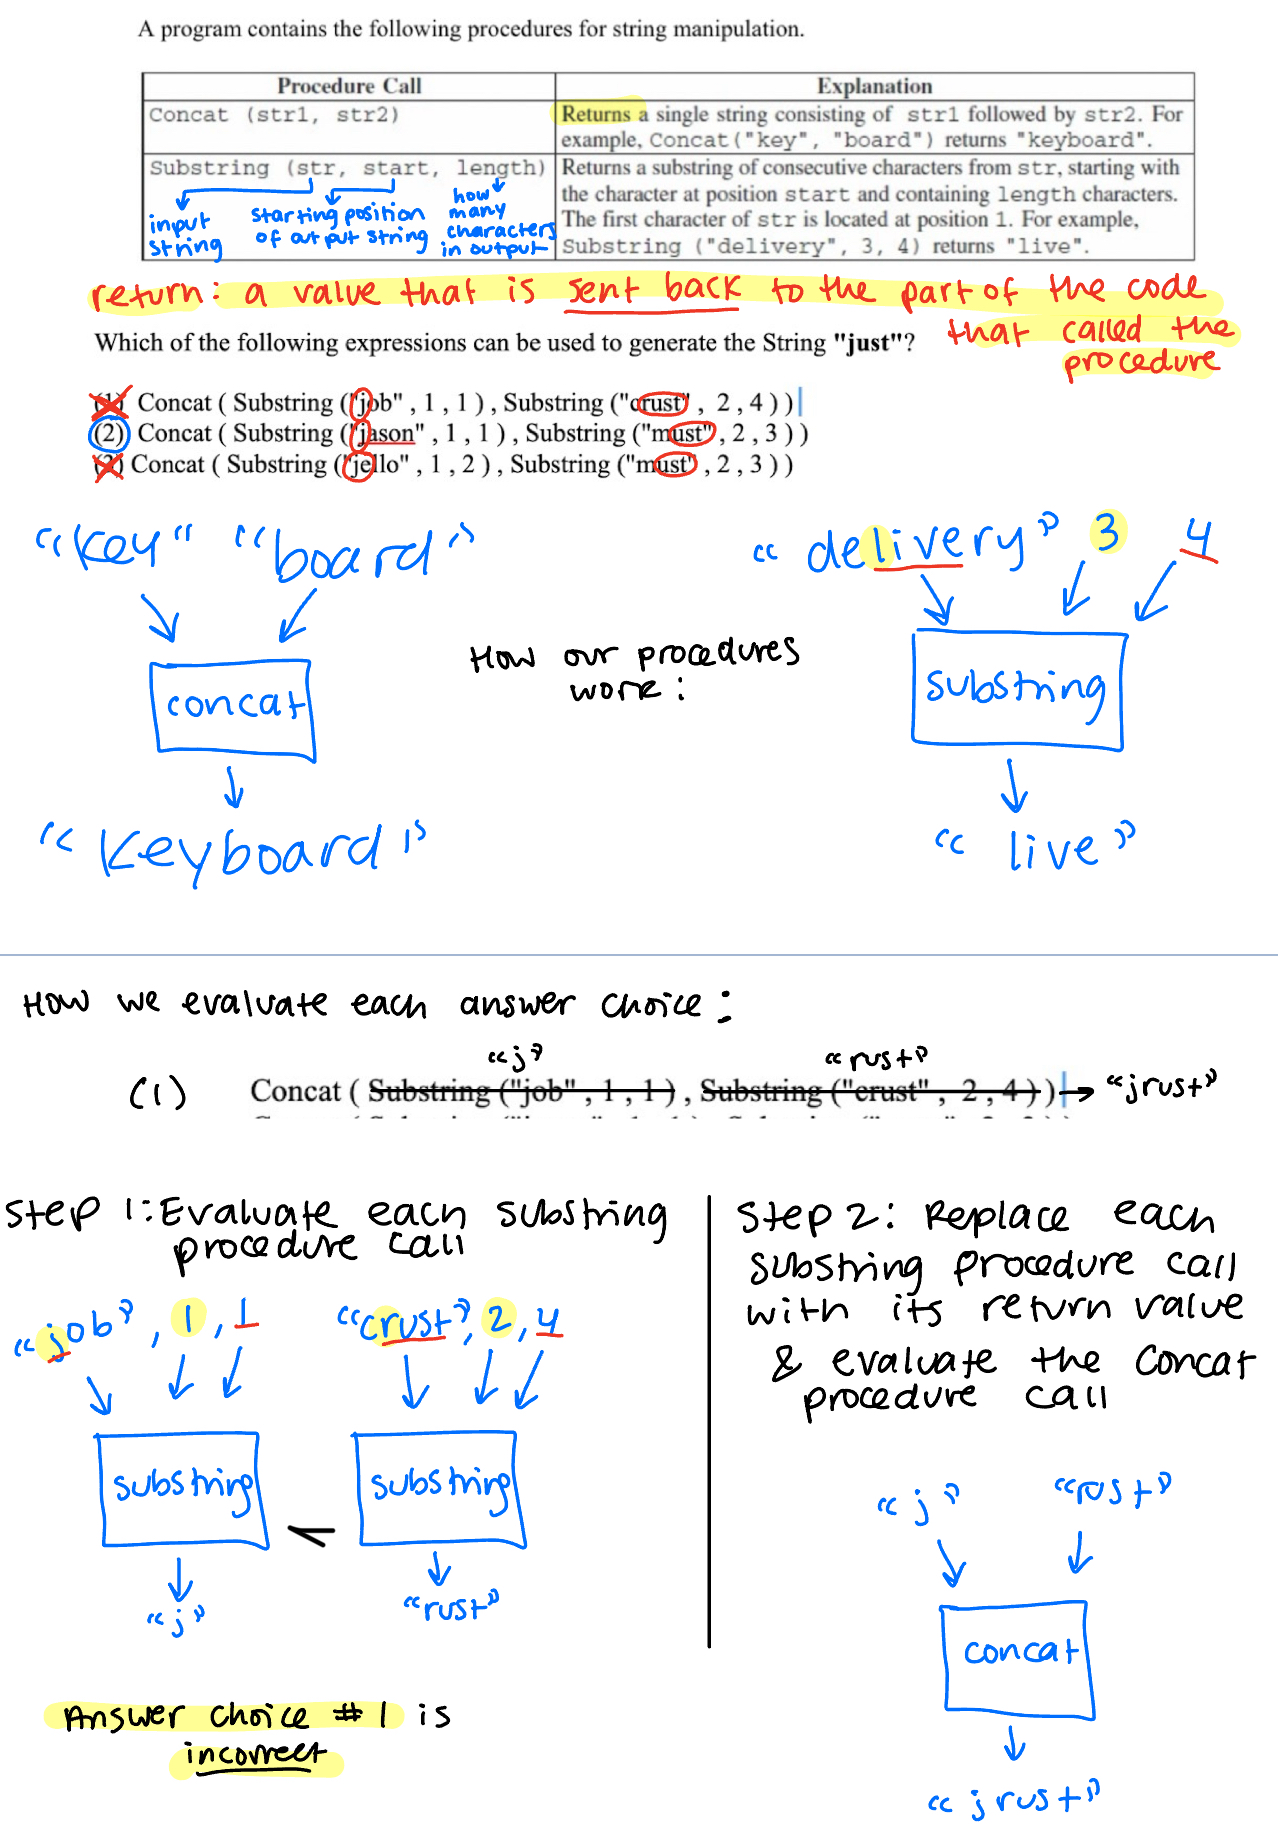 A program contains the following procedures for string manipulation.
Procedure Call
Explanation
Concat (str1, str2)
Returns a single string consisting of str1 followed by str2. For
example, Concat("key", "board") returns "keyboard".
Substring (str, start, length)
input
string
starting position
of output string
how
many
characters
in output
Returns a substring of consecutive characters from str, starting with
the character at position start and containing length characters.
The first character of str is located at position 1. For example,
Substring ("delivery", 3, 4) returns "live".
return: a value that is sent back to the part of the code
that called the
procedure
Which of the following expressions can be used to generate the String "just"?
(1) Concat ( Substring ("job" , 1 , 1 ) , Substring ("crust" , 2 , 4 ) )
(2) Concat ( Substring ("jason" , 1 , 1 ) , Substring ("must" , 2 , 3 ) )
(3) Concat ( Substring ("jello" , 1 , 2 ) , Substring ("must" , 2 , 3 ) )
"key" "board"
concat
"keyboard"
How our procedures
work:
"delivery" 3 4
substring
"live"
How we evaluate each answer choice:
"j" "rust"
(1) Concat ( Substring ("job" , 1 , 1 ) , Substring ("crust" , 2 , 4 ) ) → "jrust"
Step 1: Evaluate each substring
procedure call
"job", 1, 1
"crust", 2, 4
substring
substring
"j"
"rust"
Answer choice #1 is
incorrect
Step 2: Replace each
substring procedure call
with its return value
& evaluate the concat
procedure call
"j" "rust"
concat
"jrust"